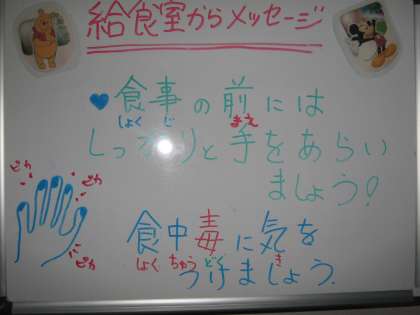 給食室からメッセージ
♥食事の前には
しょく じ まえ
しっかりと手をあらい
ましょう!
ピカ
ピカ
ピカ
食中毒に気を
しょく ちゅう どく き
つけましょう.